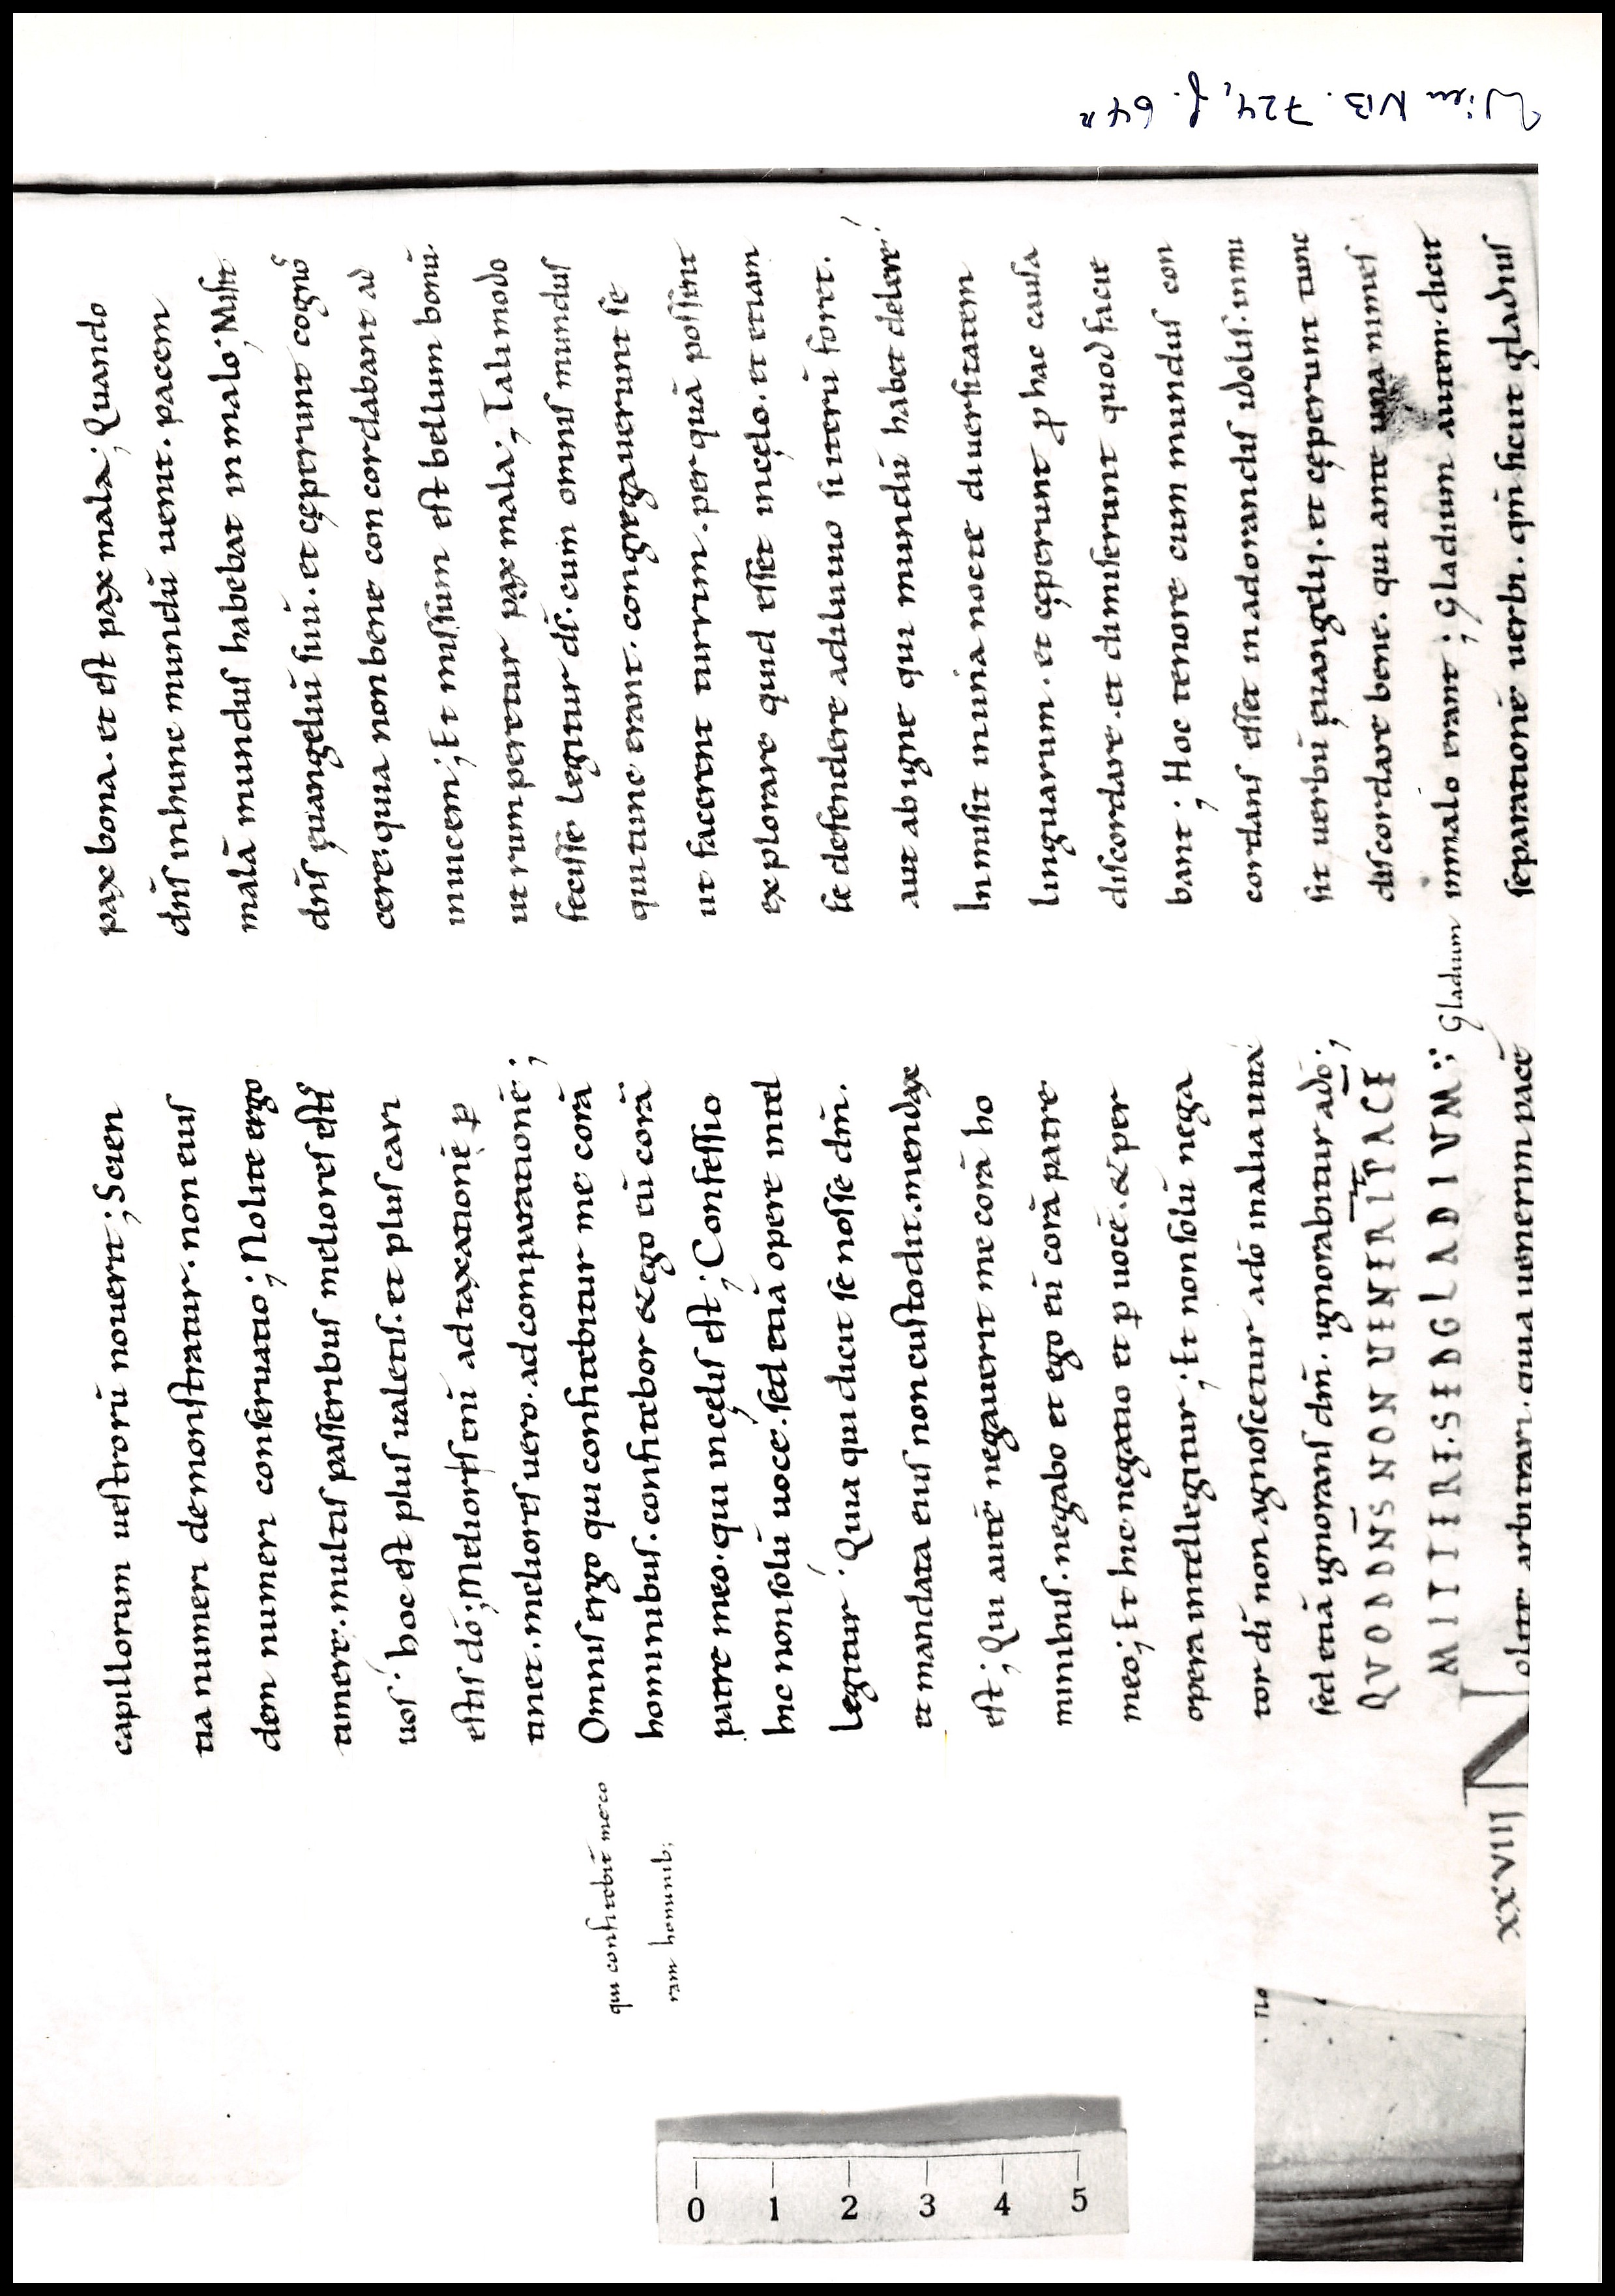 Wien NB. 724, f. 64r
capillorum uestrorū nouerit; Scien
tia numeri demonstratur. non eius
dem numeri conseruatio; Nolite ergo
timere. multis passeribus meliores estis
uos. hoc est plus ualetis. et plus cari
estis dō; Meliores eni ad taxationē ꝑ
tinet. meliores uero. ad comparationē;
Omnis ergo qui confitebitur me corā
hominibus. confitebor & ego eū corā
patre meo. qui in cęlis est; Confessio
hic non solū uoce. sed etiā opere intel
legitur. Quia qui dicit se nosse dm̄.
et mandata eius non custodit. mendax
est; Qui autē negauerit me corā ho
minibus. negabo et ego eū corā patre
meo; Et hic negatio et ꝑ uocē. & per
opera intellegitur; Et non solū nega
tor dī non agnoscetur a dō in alia uita
sed etiā ignorans dm̄. ignorabitur a dō;
QVOD DN̄S NON UENERIT PACĒ
MITTERE. SED GLADIUM;
XXVIII Nolite arbitrari. quia uenerim pacē
qui confitebit̄ me co
ram hominib;
Gladium
pax bona. et est pax mala; Quando
dn̄s in hunc mundū uenit. pacem
malā mundus habebat in malo; Misit
dn̄s ęuangeliū suū. et cęperunt cogno
cere. quia non bene concordabant ad
inuicem; Et missum est bellum bonū.
ut rumperetur pax mala; Tali modo
fecisse legitur dī. cum omnis mundus
qui tunc erant. congregauerunt se
ut facerent turrim. per quā possent
explorare quid esset in cęlo. et etiam
se defendere a diluuio si iterū foret.
aut ab igne qui mundū habet delere.
Inmisit in una nocte diuersitatem
linguarum. et cęperunt ꝓ hac causa
discordare. et dimiserunt quod facie
bant; Hoc tenore cum mundus con
cordans esset in adorandis idolis. inmi
sit uerbū ęuangelij. et cęperunt tunc
discordare bene. qui ante unanimes
inmalo erant; Gladium autem dicit
separationē uerbi. qm̄ sicut gladius
0 1 2 3 4 5